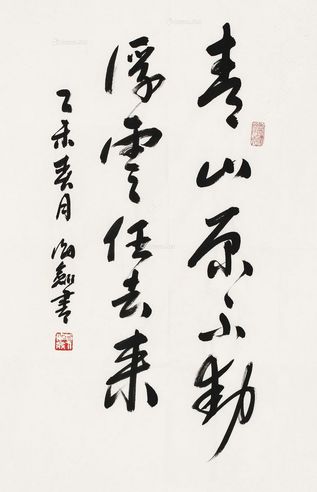 青山原不動
浮雲任去來
乙未春月 書